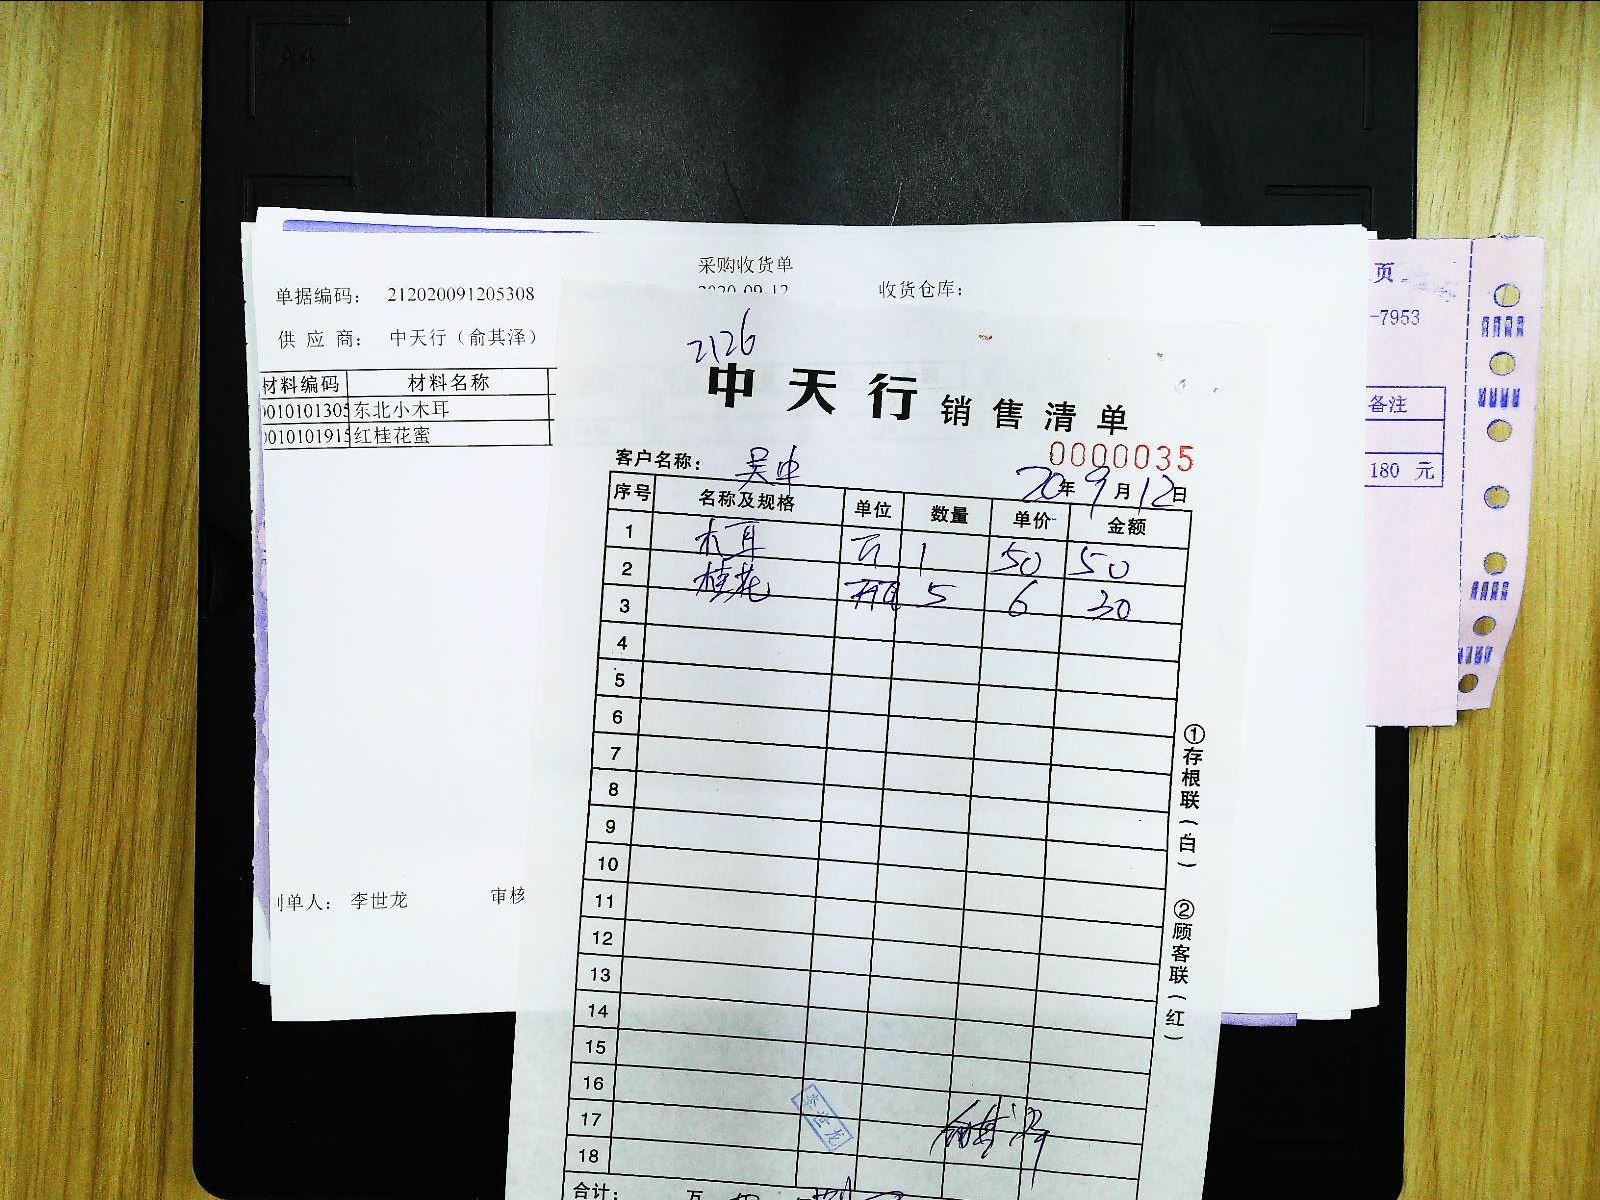 采购收货单
单据编码： 212020091205308
2020-09-12
收货仓库：
供 应 商： 中天行（俞其泽）
材料编码 材料名称
0010101305 东北小木耳
0010101915 红桂花蜜
制单人： 李世龙
审核
页
-7953
备注
180 元
2126
中天行 销售清单
0000035
客户名称： 吴中
20年9月12日
序号 名称及规格 单位 数量 单价 金额
1 木耳 斤 1 50 50
2 桂花 瓶 5 6 30
3
4
5
6
7
8
9
10
11
12
13
14
15
16
17
18
李世龙
俞其泽
合计：
①存根联（白）
②顾客联（红）